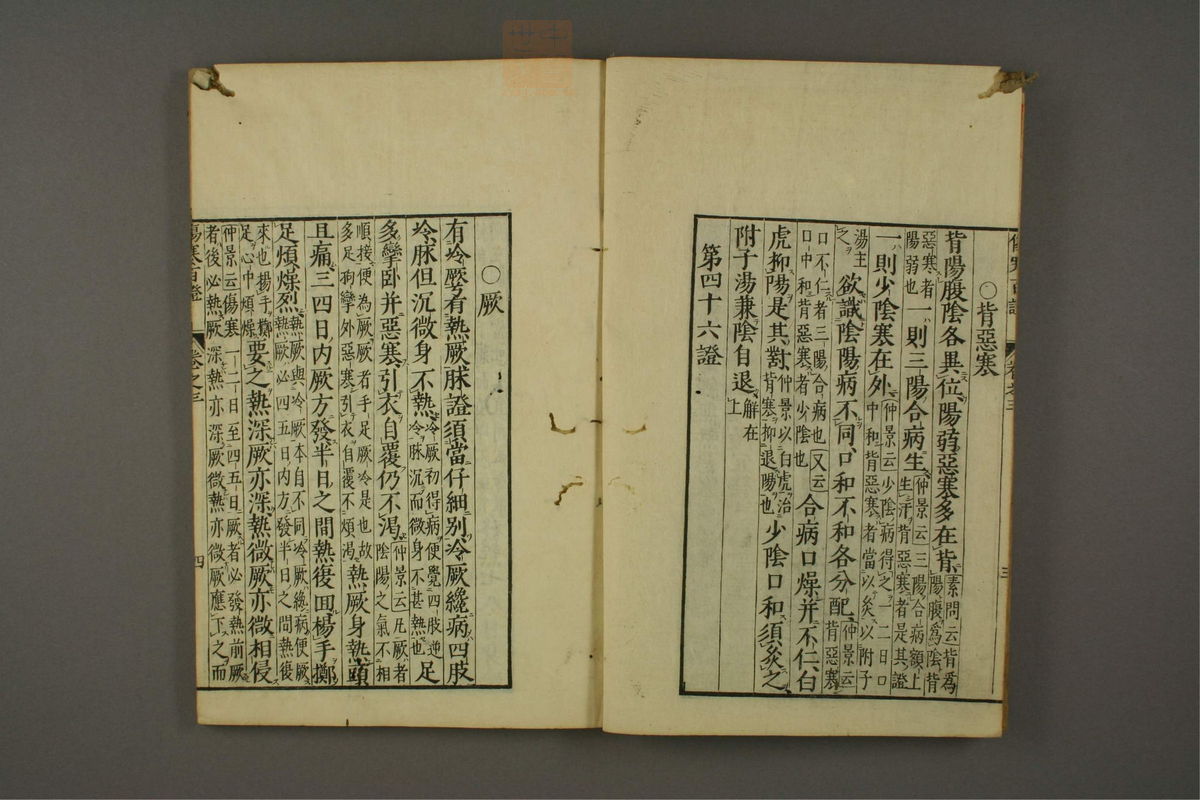 ○背惡寒
背陽腹陰各異位陽弱惡寒多在背素問云背為陽腹為陰背
惡寒者陽弱也一則三陽合病生仲景云三陽合病額上生汗背惡寒者是其證
一則少陰寒在外仲景云少陰病得之一二日口中和背惡寒者當以灸以附子
湯主之欲識陰陽病不同口和不和各分配仲景云背惡寒
口不仁者三陽合病也又云口中和背惡寒者少陰也合病口燥并不仁白
虎抑陽是其對仲景以白虎治背寒抑退陽也少陰口和須灸之
附子湯兼陰自退解在上
第四十六證
○厥
有冷厥兮有熱厥脉證須當仔細别冷厥纔病四肢
冷脉但沉微身不熱冷厥初得病便覺四肢逆冷脉沉而微身不甚熱也足
多攣卧并惡寒引衣自覆仍不渴仲景云凡厥者陰陽之氣不相
順接便為厥厥者手足厥冷是也故多足拘攣外惡寒引衣自覆不煩渴熱厥身熱頭
且痛三四日内厥方發半日之間熱復回楊手擲
足煩燥烈熱厥與冷厥本自不同冷厥纔病便厥熱厥必四五日内方發半日之間熱復
來也揚手擲足心中煩燥要之熱深厥亦深熱微厥亦微相侵
仲景云傷寒一二日至四五日厥者必發熱前厥者後必熱厥深熱亦深厥微熱亦微厥應下之而
傷寒百證 卷之三 四